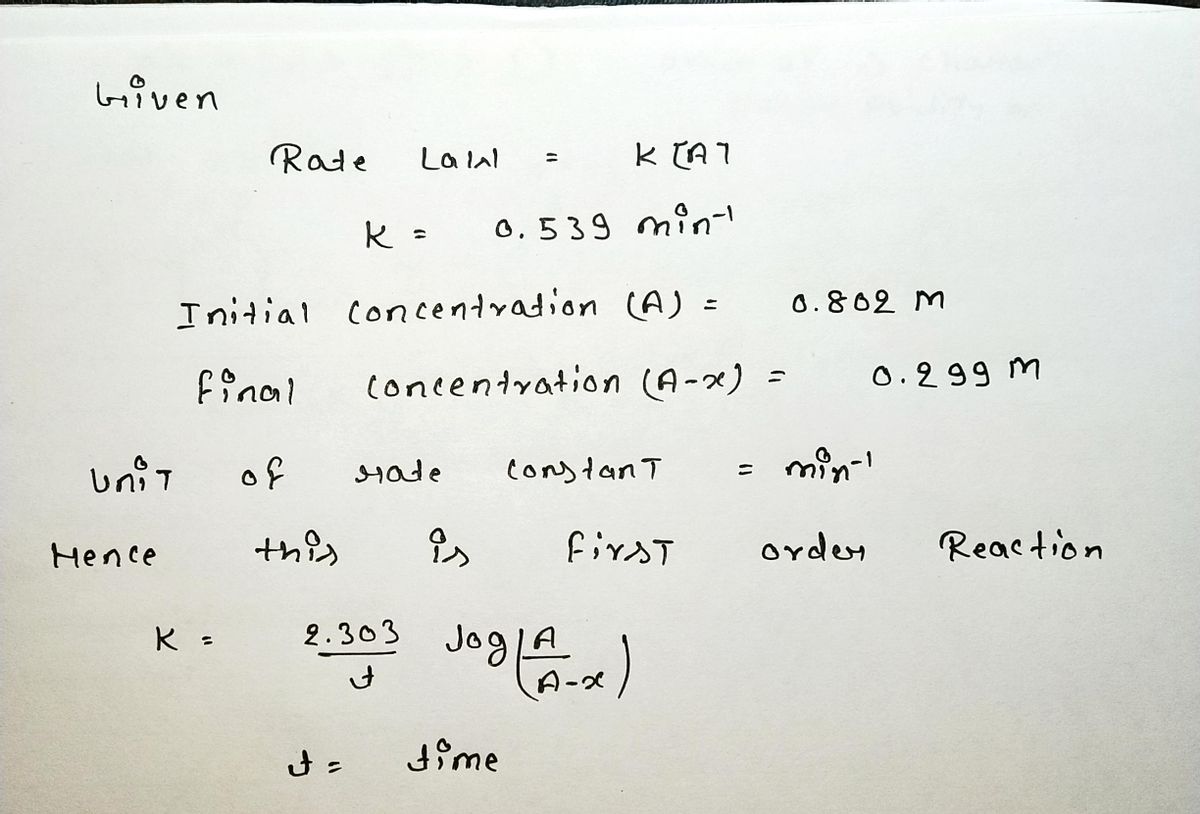 Given
Rate Law = K [A]
K = 0.539 min⁻¹
Initial concentration (A) = 0.802 M
final concentration (A-x) = 0.299 M
UniT of rate constanT = min⁻¹
Hence this is firsT order Reaction
K = 2.303/t log(A/A-x)
t = time